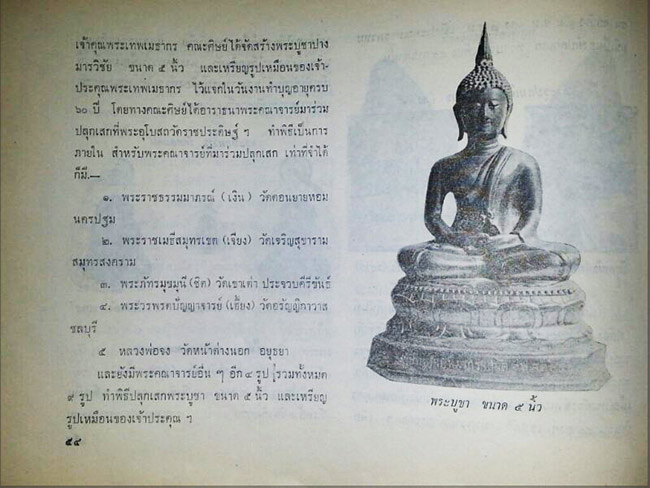 เจ้าคุณพระเทพเมธากร คณะศิษย์ได้จัดสร้างพระบูชาปาง
มารวิชัย ขนาด ๕ นิ้ว และเหรียญรูปเหมือนของเจ้า-
ประคุณพระเทพเมธากร ไว้แจกในวันงานทำบุญอายุครบ
๖๐ ปี โดยทางคณะศิษย์ได้อาราธนาพระคณาจารย์มาร่วม
ปลุกเสกที่พระอุโบสถวัดราชประดิษฐ์ ฯ ทำพิธีเป็นการ
ภายใน สำหรับพระคณาจารย์ที่มาร่วมปลุกเสก เท่าที่จำได้
ก็มี.—
๑. พระราชธรรมมาภรณ์ (เงิน) วัดดอนยายหอม
นครปฐม
๒. พระราชเมธีสมุทรเขต (เจียง) วัดเจริญสุขาราม
สมุทรสงคราม
๓. พระภัทรมุขมุนี (ชิต) วัดเขาเต่า ประจวบคีรีขันธ์
๔. พระวรพรตปัญญาจารย์ (เฮี้ยง) วัดอรัญญิกาวาส
ชลบุรี
๕ หลวงพ่อจง วัดหน้าต่างนอก อยุธยา
และยังมีพระคณาจารย์อื่น ๆ อีก ๔ รูป รวมทั้งหมด
๙ รูป ทำพิธีปลุกเสกพระบูชา ขนาด ๕ นิ้ว และเหรียญ
รูปเหมือนของเจ้าประคุณ ฯ
๕๔
พระบูชา ขนาด ๕ นิ้ว